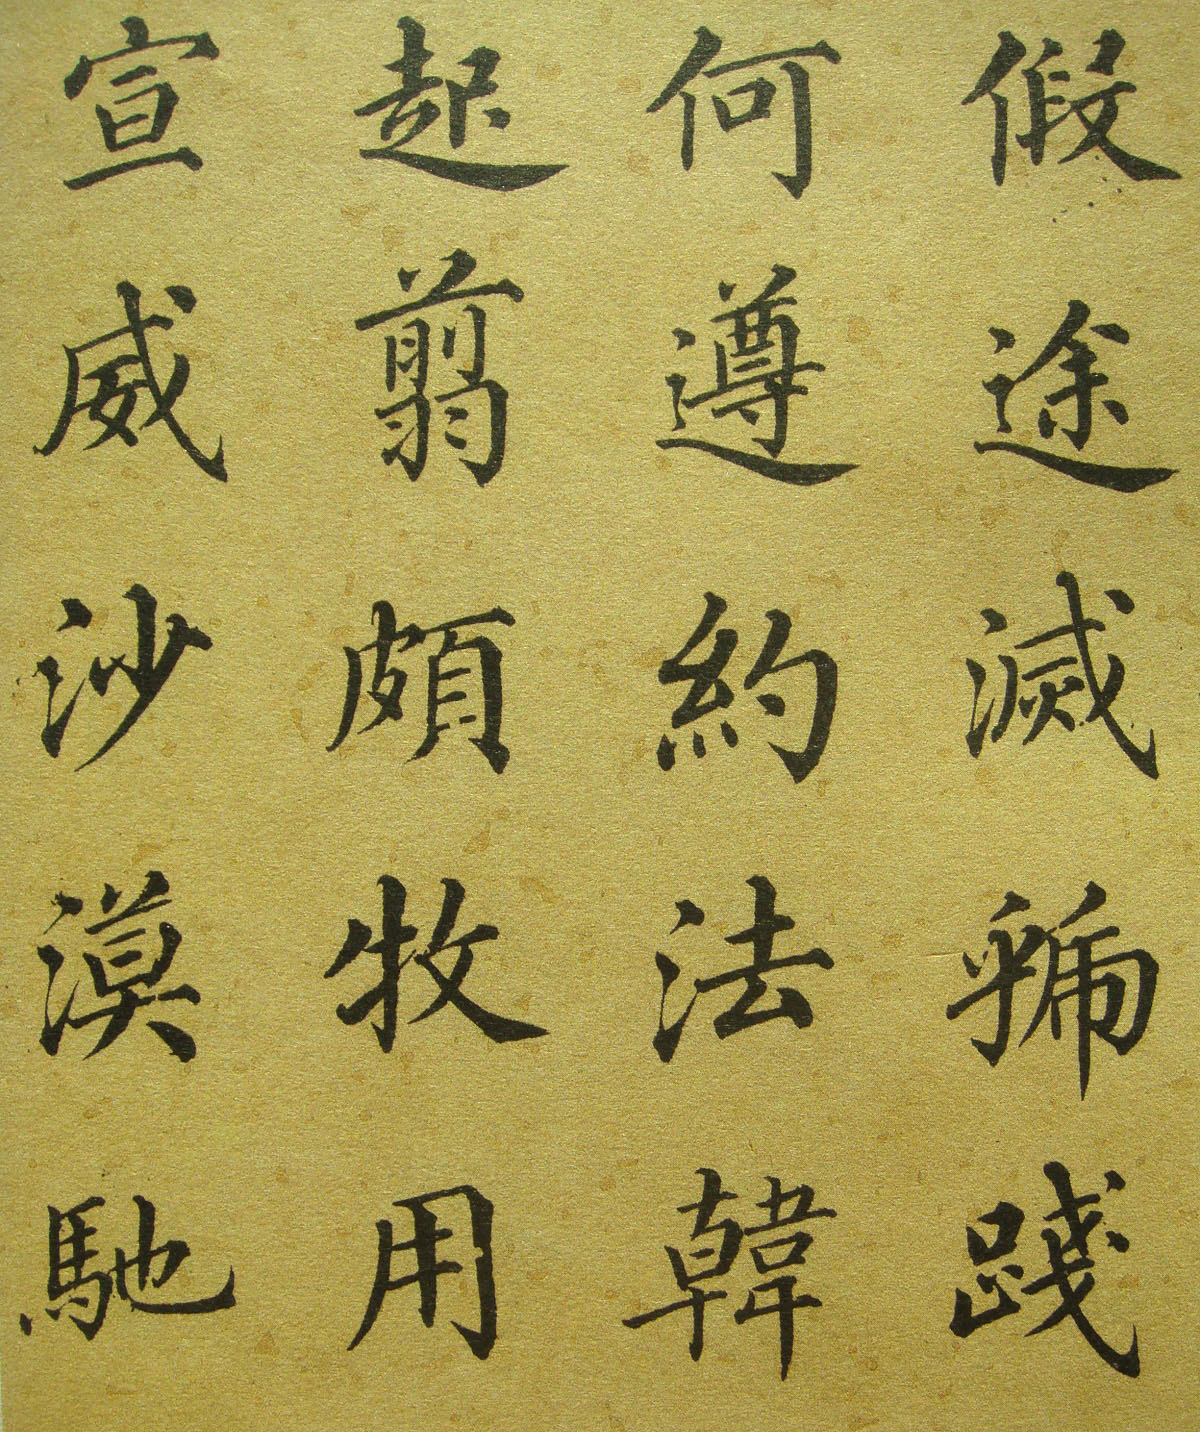 假途滅虢踐
何遵約法韓
起翦頗牧用
宣威沙漠馳